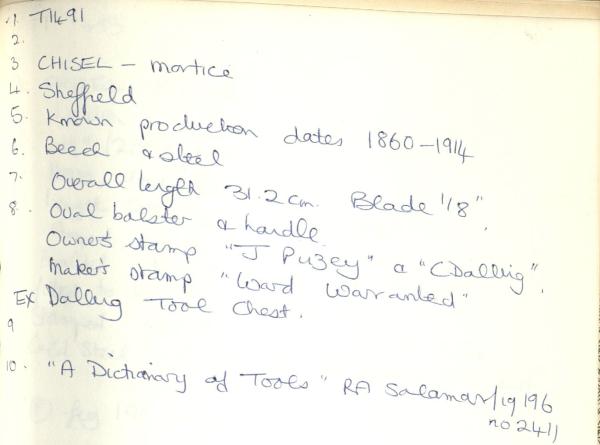 1 T1491
2.
3 CHISEL – mortice
4. Sheffield
5. Known production dates 1860–1914
6. Beech & steel
7. Overall length 31.2cm. Blade 1/8".
8. Oval balster & handle
Owner's stamp "J Puzey" & "C Dalling".
Maker's stamp "Ward Warranted"
Ex Dalling Tool Chest.
9
10. "A Dictionary of Tools" RA Salaman fig 196
no 2411